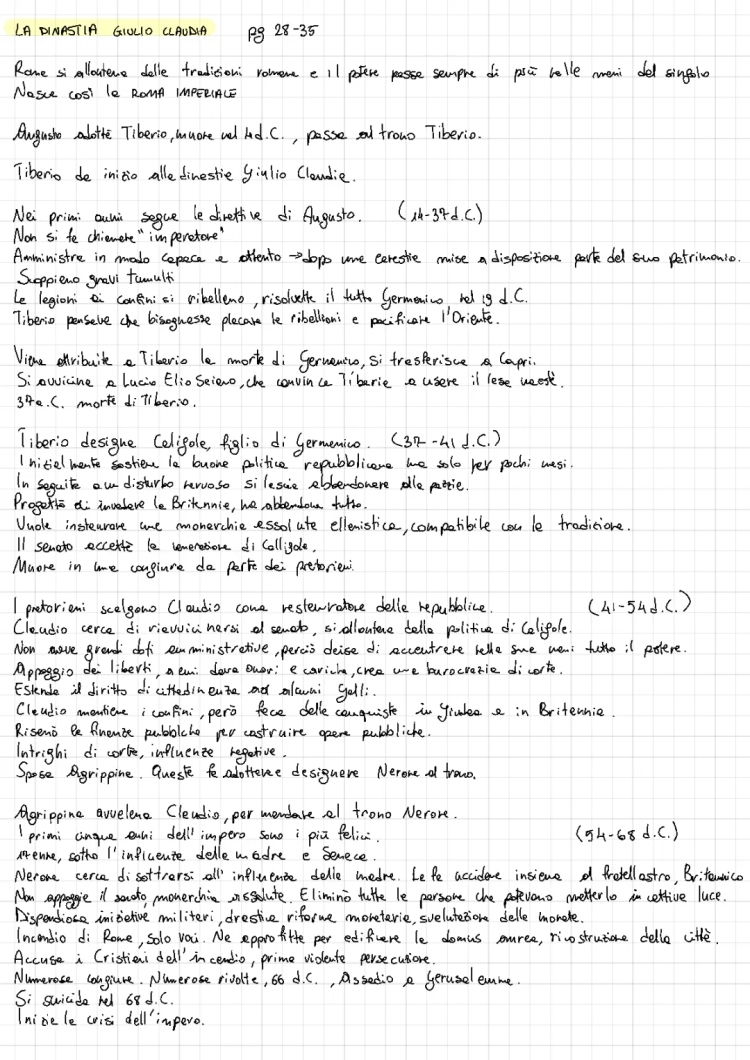 LA DINASTIA GIULIO CLAUDIA pg 28-35
Roma si allontana dalle tradizioni romane e il potere passa sempre di più nelle mani del singolo
Nasce così la ROMA IMPERIALE
Augusto adotta Tiberio, muore nel 14 d.C., passa al trono Tiberio.
Tiberio da inizio alla dinastia Giulio Claudia.
Nei primi anni segue le direttive di Augusto. (14-37 d.C.)
Non si fa chiamare "imperatore"
Amministra in modo capace e attento → dopo una carestia mise a disposizione parte del suo patrimonio.
Scoppiano gravi tumulti
Le legioni ai confini si ribellano, risolvette il tutto Germanico nel 19 d.C.
Tiberio pensava che bisognasse placare le ribellioni e pacificare l'Oriente.
Viene attribuita a Tiberio la morte di Germanico, si trasferisce a Capri.
Si avvicina a Lucio Elio Seiano, che convince Tiberio a usare il lesa maestà.
37 a.C. morte di Tiberio.
Tiberio designa Caligola, figlio di Germanico. (37-41 d.C.)
Inizialmente sostiene la buona politica repubblicana ma solo per pochi mesi.
In seguito a un disturbo nervoso si lascia abbandonare alla pazzia.
Progetta di invadere la Britannia, ma abbandona tutto.
Vuole instaurare una monarchia assoluta ellenistica, compatibile con la tradizione.
Il senato accetta la venerazione di Calligola.
Muore in una congiura da parte dei pretoriani.
I pretoriani scelgono Claudio come restauratore della repubblica. (41-54 d.C.)
Claudio cerca di riavvicinarsi al senato, si allontana dalla politica di Caligola.
Non aveva grandi doti amministrative, perciò decise di accentrare nelle sue mani tutto il potere.
Appoggio dei liberti, a cui dava onori e cariche, crea una burocrazia di corte.
Estende il diritto di cittadinanza ad alcuni Galli.
Claudio mantiene i confini, però fece delle conquiste in Giudea e in Britannia.
Risanò le finanze pubbliche per costruire opere pubbliche.
Intrighi di corte, influenze negative.
Sposa Agrippina. Questa fa adottare e designare Nerone al trono.
Agrippina avvelena Claudio, per mandare al trono Nerone.
I primi cinque anni dell'impero sono i più felici. (54-68 d.C.)
17enne, sotto l'influenza della madre e Seneca.
Nerone cerca di sottrarsi all'influenza della madre. La fa uccidere insieme al fratellastro, Britannico
Non appoggia il senato, monarchia assoluta. Eliminò tutte le persone che potevano metterlo in cattiva luce.
Dispendiosa iniziative militari, drastica riforma monetaria, svalutazione della moneta.
Incendio di Roma, solo voci. Ne approfitta per edificare la domus aurea, ricostruzione della città.
Accusa i Cristiani dell'incendio, prima violenta persecuzione.
Numerose congiure. Numerose rivolte, 66 d.C., Assedio a Gerusalemme.
Si suicida nel 68 d.C.
Inizia la crisi dell'impero.